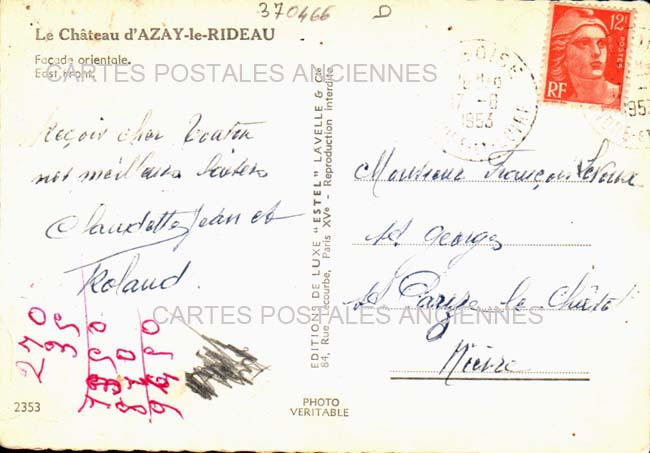 370466 D
Le Château d'AZAY-le-RIDEAU
Façade orientale.
East front.
CARTES POSTALES ANCIENNES
12F
POSTES
RF
1953
Reçois cher Tonton
nos meilleurs baisers
Claudette Jean et
Roland
EDITIONS DE LUXE "ESTEL" LAVELLE & Cie
84, Rue Lecourbe, Paris XVe - Reproduction interdite
Monsieur François
St Georges
St Parize le Châtel
Nièvre
CARTES POSTALES ANCIENNES
270
95
2353
PHOTO
VERITABLE